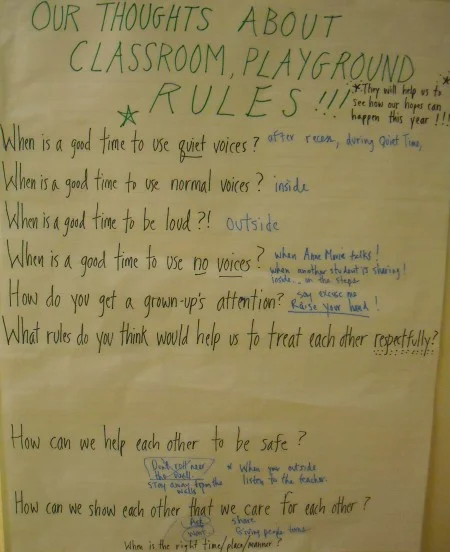 OUR THOUGHTS ABOUT
CLASSROOM, PLAYGROUND
RULES!!!
*They will help us to
see how our hopes can
happen this year!!!
When is a good time to use quiet voices? after recess, during Quiet Time,
When is a good time to use normal voices? inside
When is a good time to be loud?! outside
When is a good time to use no voices? when Anne Marie talks!
when another student is sharing!
inside... on the steps
How do you get a grown-up's attention? say excuse me
Raise your hand!
What rules do you think would help us to treat each other respectfully?
How can we help each other to be safe?
Don't roll near
the wall.
stay away from the
walls
* When you outside
listen to the teacher.
How can we show each other that we care for each other?
share
Giving people turns
When is the right time/place/manner?